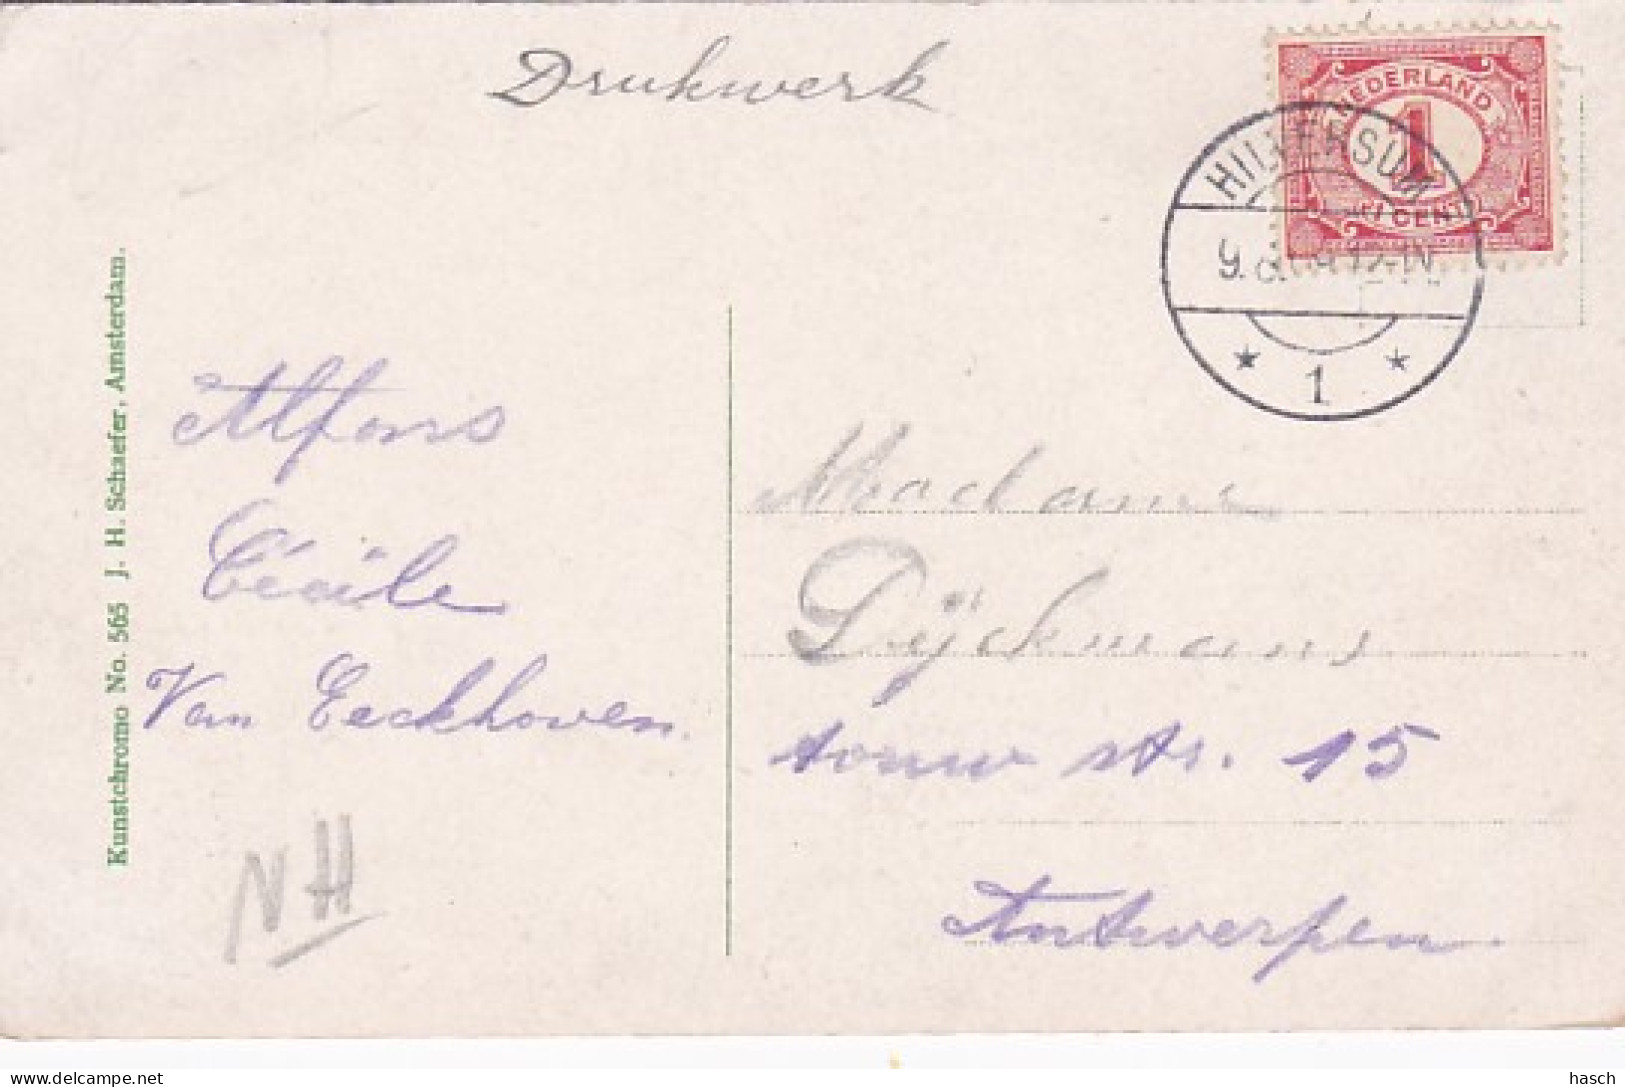 Drukwerk
NEDERLAND
1
1 CENT
HILVERSUM
9. 12-1N.
1
Alfons
Cécile
Van Eeckhoven.
NH
Madame
Dijckmans
touw str. 15
Antwerpen.
Kunstchromo No. 565 J. H. Schaefer, Amsterdam.
hasch
Delcampe.net